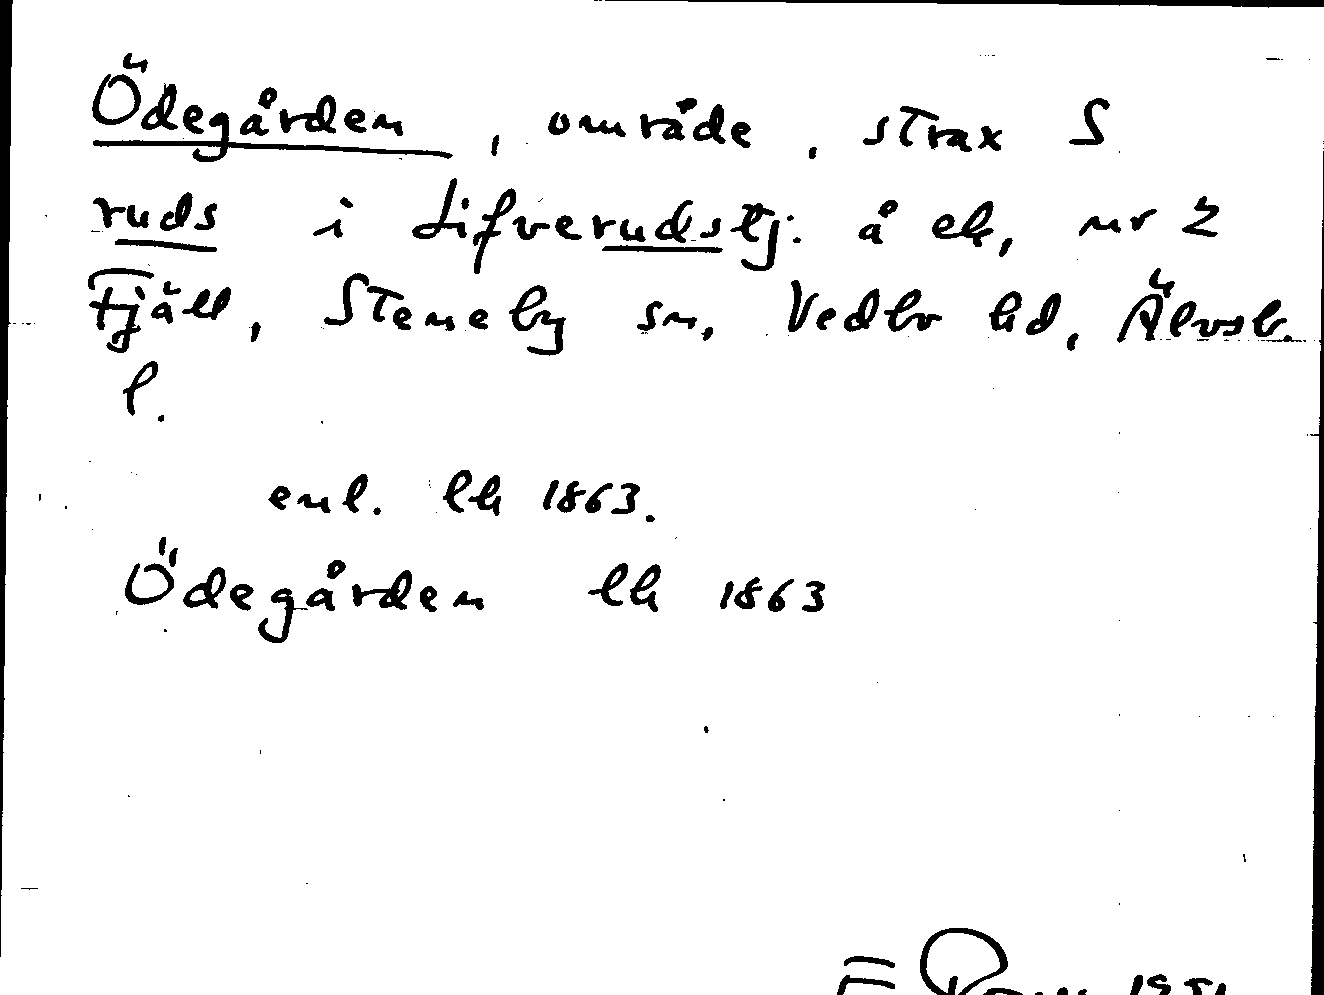 Ödegården, område, strax S
ruds i Lifverudstj: å ek, nr 2
Fjäll, Steneby sn, Vedbo hd, Älvsb.
l.
enl. lk 1863.
Ödegården lk 1863